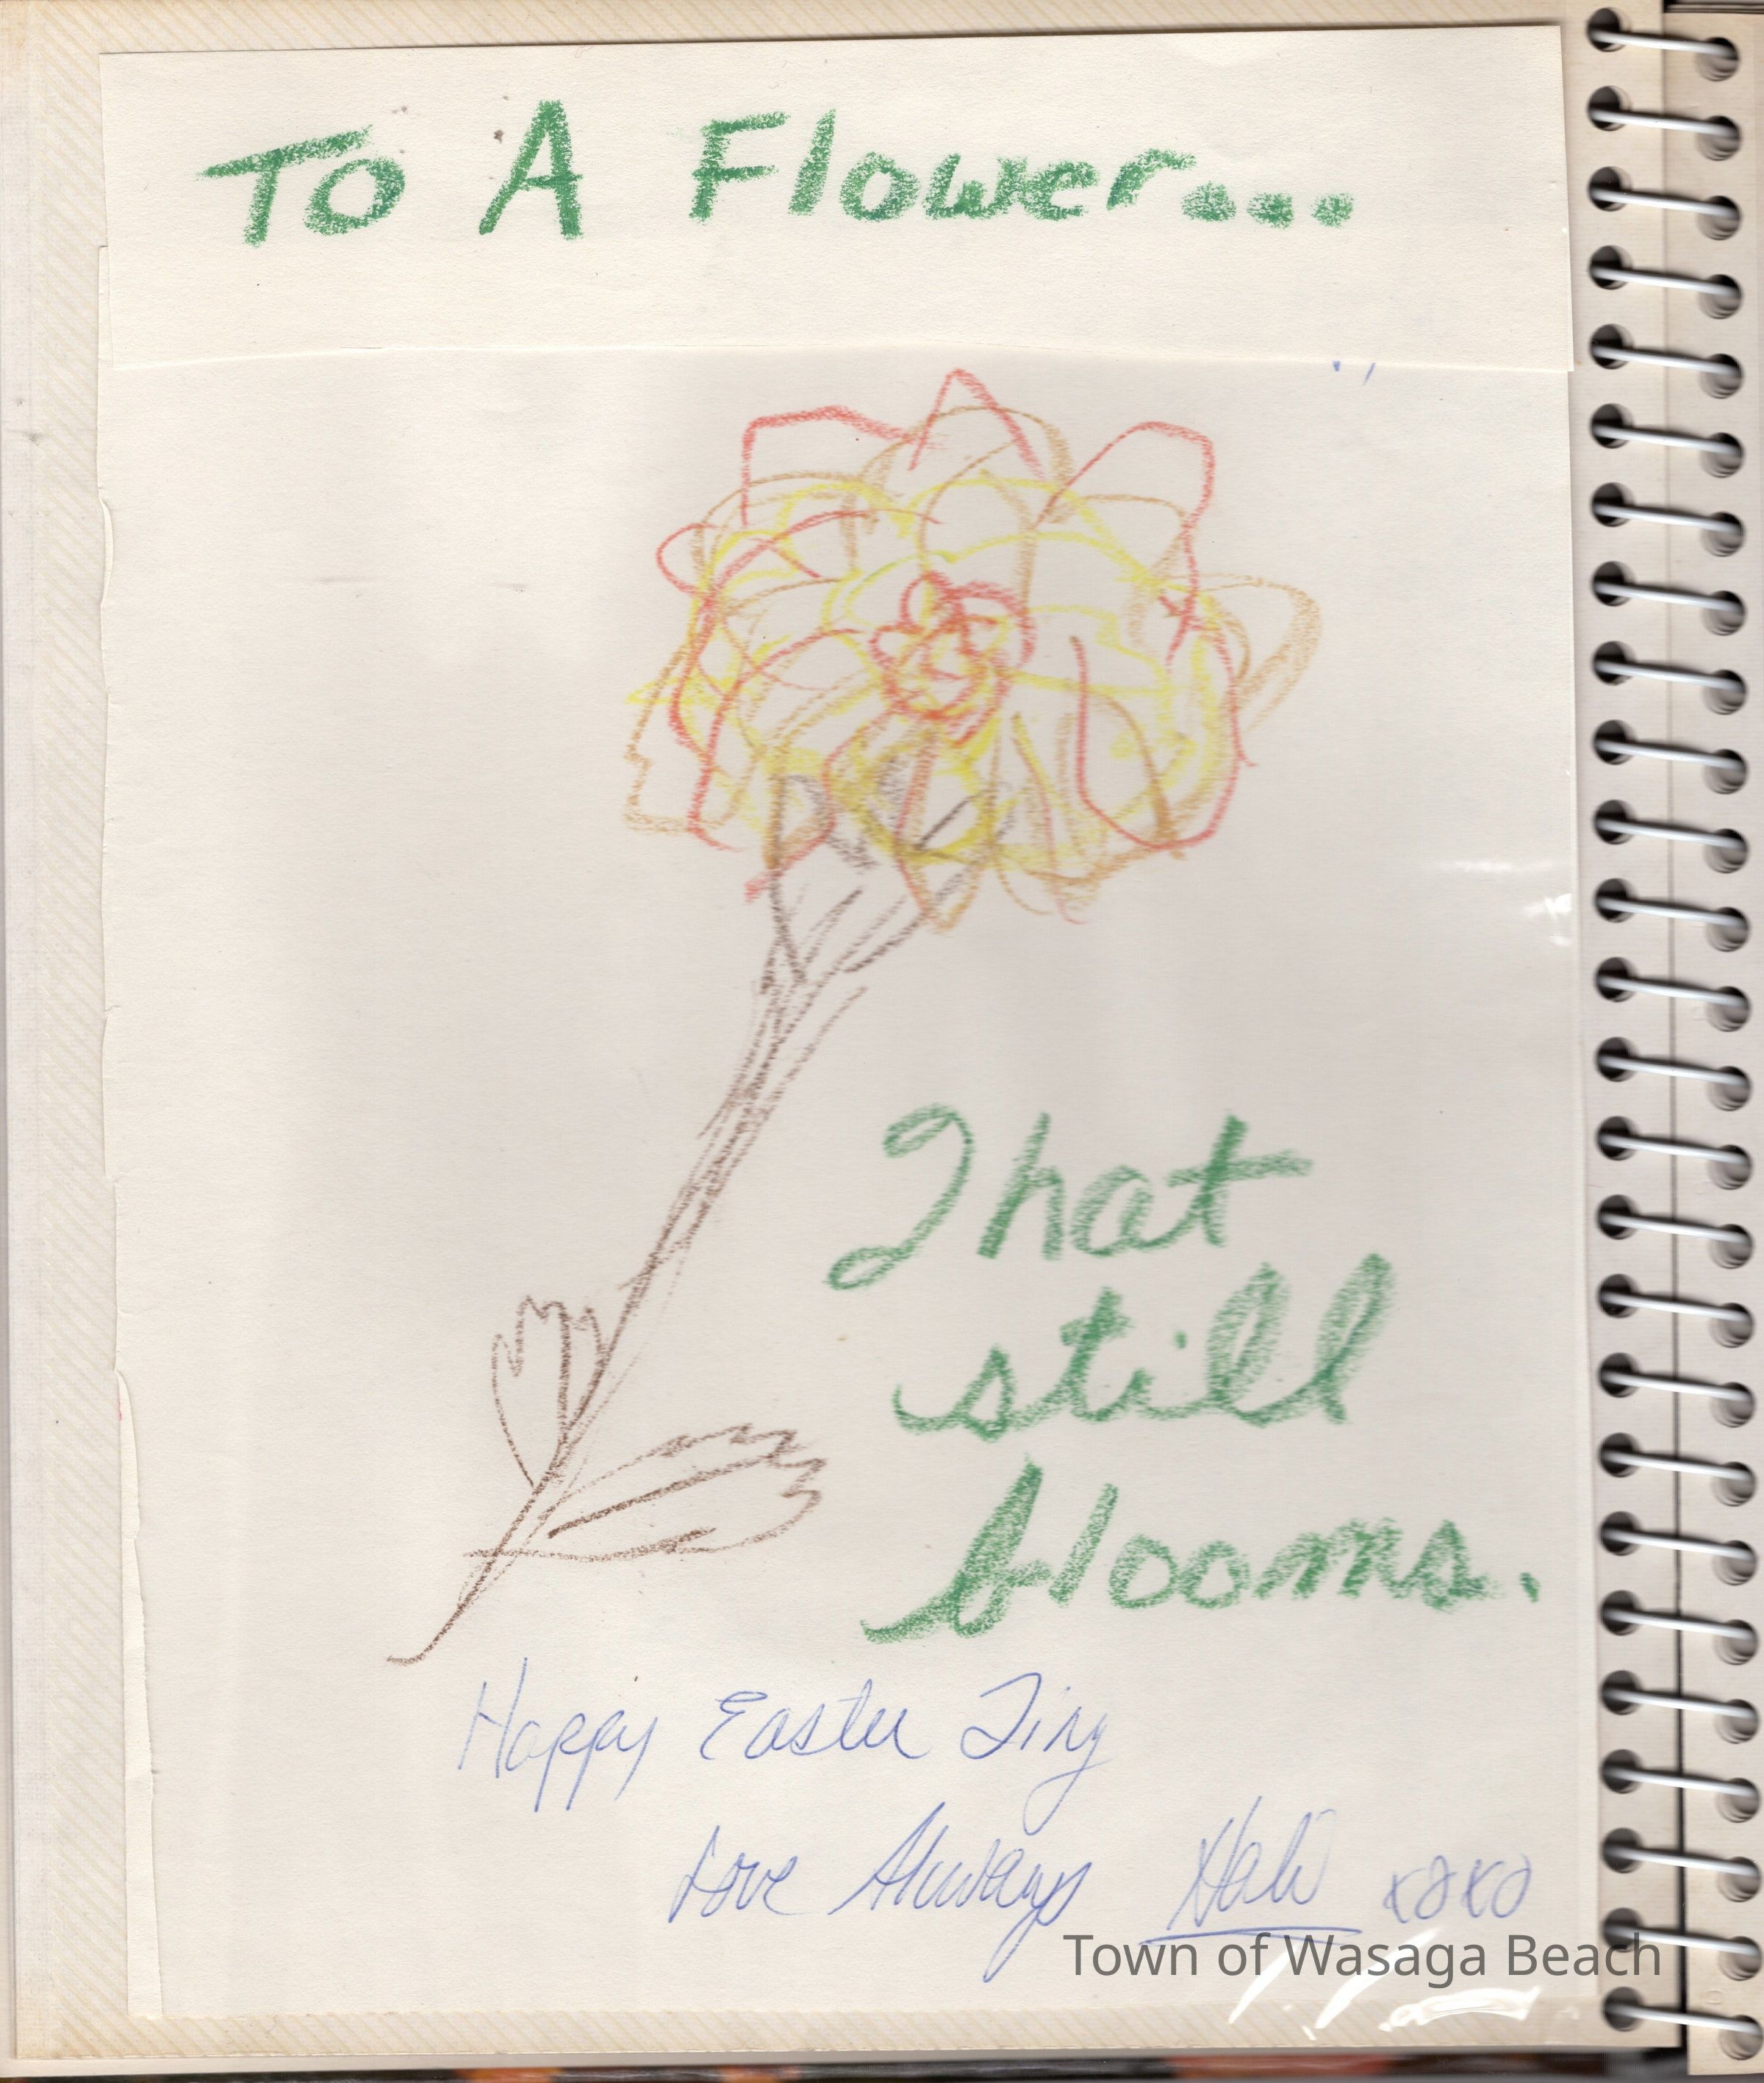 To A Flower...
That
still
blooms.
Happy Easter Tiny
Love Always xoxo
Town of Wasaga Beach